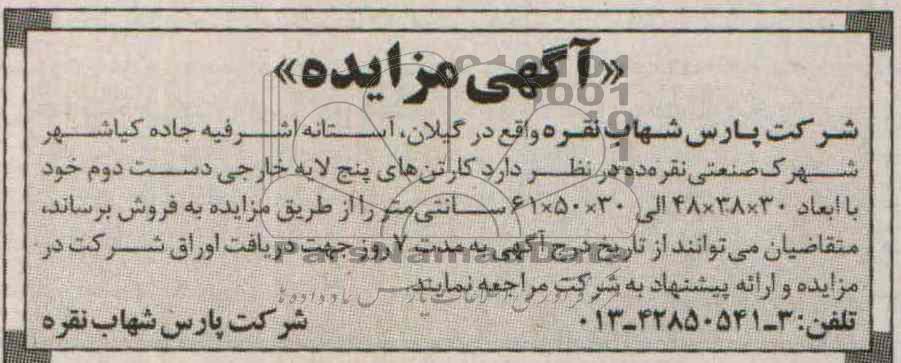 «آگهی مزایده»
شرکت پارس شهاب نقره واقع در گیلان، آستانه اشرفیه جاده کیاشهر
شهرک صنعتی نقره‌ده در نظر دارد کارتن‌های پنج لایه خارجی دست دوم خود
با ابعاد ۳۰×۳۸×۴۸ الی ۳۰×۵۰×۶۱ سانتی‌متر را از طریق مزایده به فروش برساند،
متقاضیان می‌توانند از تاریخ درج آگهی به مدت ۷ روز جهت دریافت اوراق شرکت در
مزایده و ارائه پیشنهاد به شرکت مراجعه نمایند.
تلفن: ۳ـ۴۲۸۵۰۵۴۱ـ۰۱۳ شرکت پارس شهاب نقره
ParsNamadData